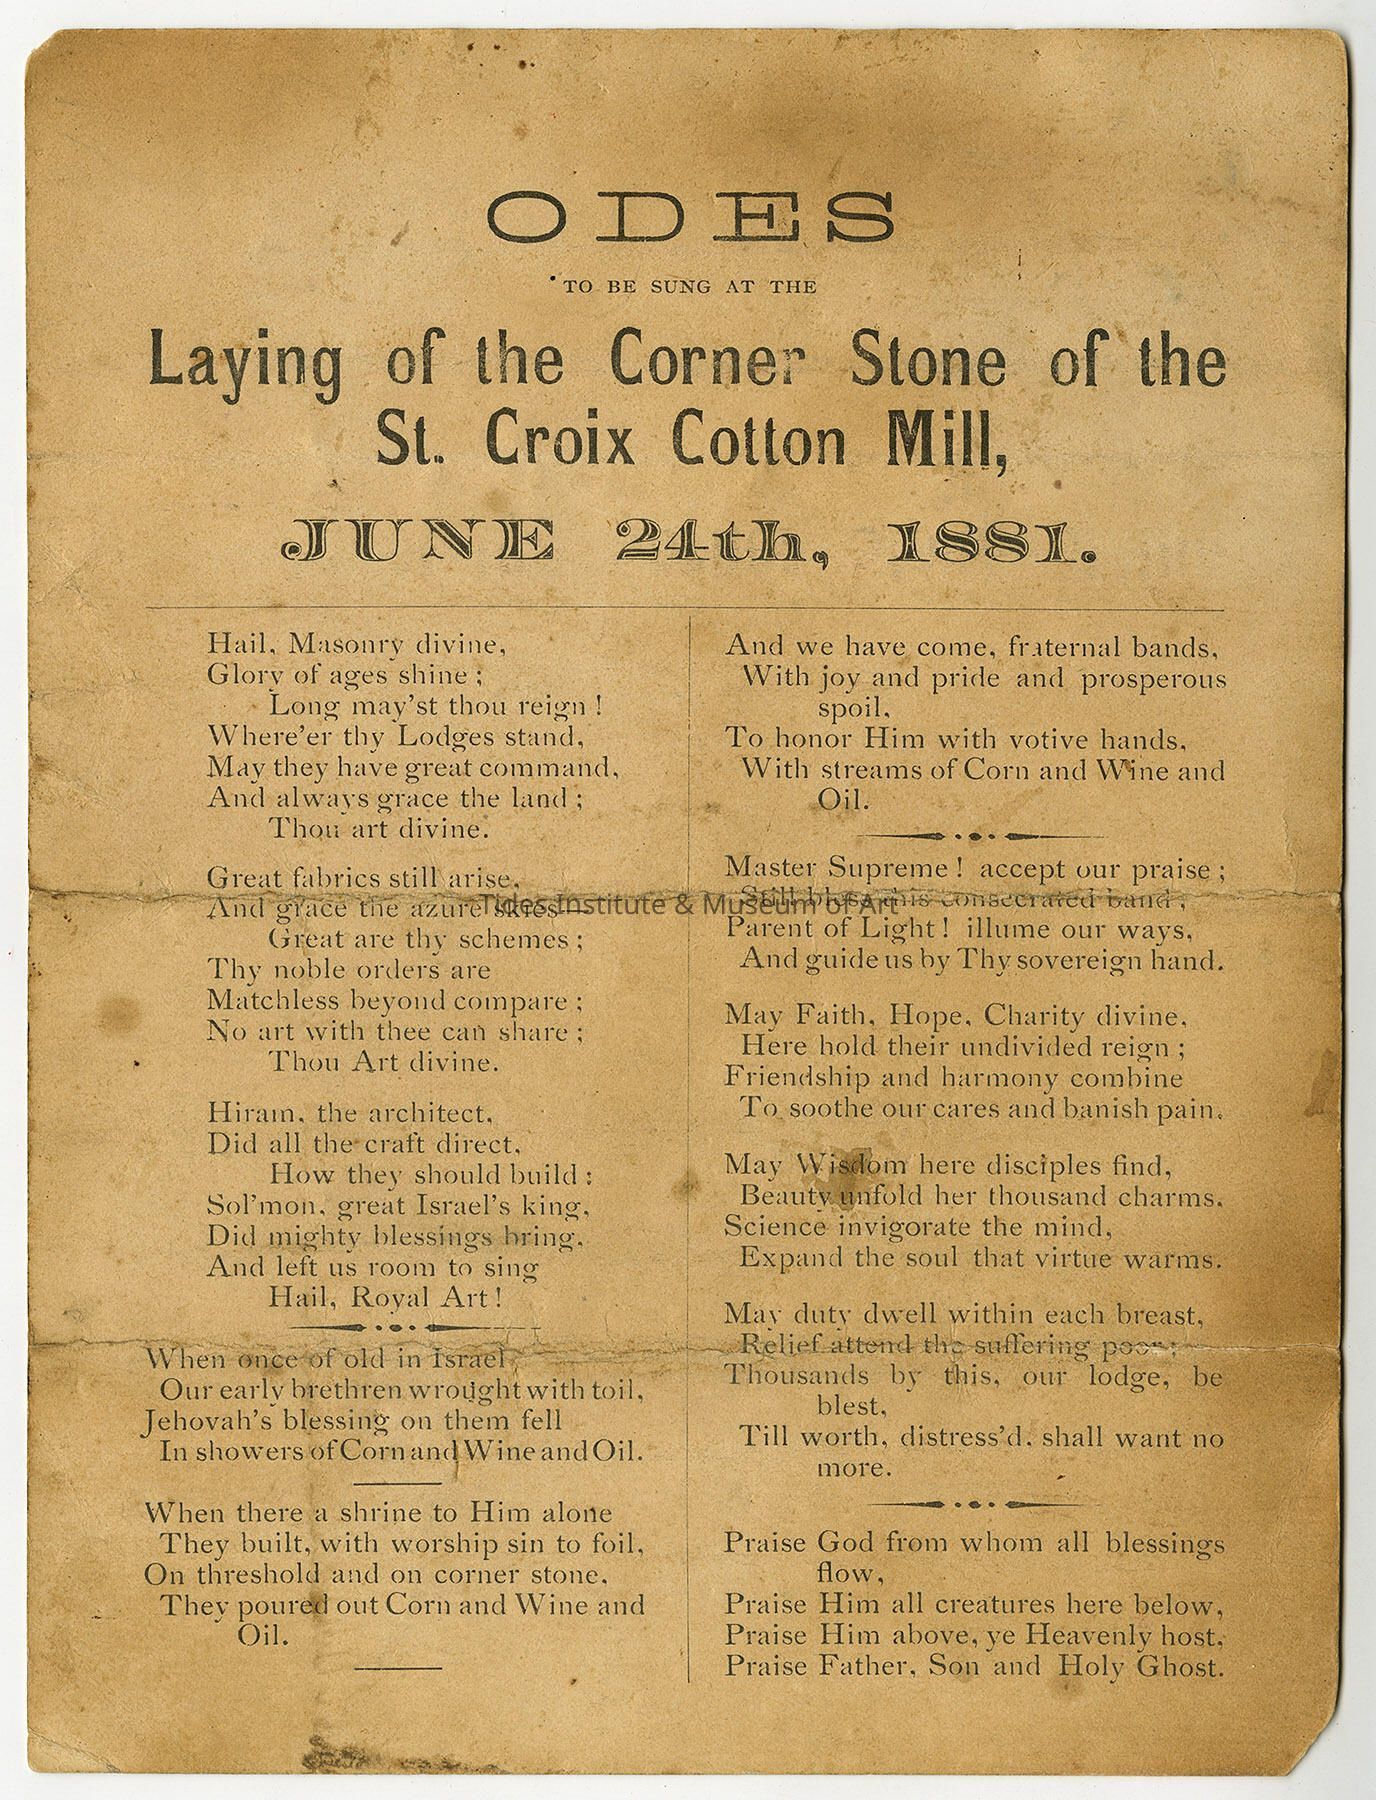 ODES
TO BE SUNG AT THE
Laying of the Corner Stone of the
St. Croix Cotton Mill,
JUNE 24th, 1881.
Hail, Masonry divine,
Glory of ages shine ;
Long may'st thou reign !
Where'er thy Lodges stand,
May they have great command,
And always grace the land ;
Thou art divine.
Great fabrics still arise,
And grace the azure skies—
Great are thy schemes ;
Thy noble orders are
Matchless beyond compare ;
No art with thee can share ;
Thou Art divine.
Hiram, the architect,
Did all the craft direct,
How they should build :
Sol'mon, great Israel's king,
Did mighty blessings bring,
And left us room to sing
Hail, Royal Art !
When once of old in Israel,
Our early brethren wrought with toil,
Jehovah's blessing on them fell
In showers of Corn and Wine and Oil.
When there a shrine to Him alone
They built, with worship sin to foil,
On threshold and on corner stone,
They poured out Corn and Wine and
Oil.
And we have come, fraternal bands,
With joy and pride and prosperous
spoil,
To honor Him with votive hands,
With streams of Corn and Wine and
Oil.
Master Supreme ! accept our praise ;
Still bless this consecrated band ;
Parent of Light ! illume our ways,
And guide us by Thy sovereign hand.
May Faith, Hope, Charity divine,
Here hold their undivided reign ;
Friendship and harmony combine
To soothe our cares and banish pain.
May Wisdom here disciples find,
Beauty unfold her thousand charms,
Science invigorate the mind,
Expand the soul that virtue warms.
May duty dwell within each breast,
Relief attend the suffering poor ;
Thousands by this, our lodge, be
blest,
Till worth, distress'd, shall want no
more.
Praise God from whom all blessings
flow,
Praise Him all creatures here below,
Praise Him above, ye Heavenly host,
Praise Father, Son and Holy Ghost.
Tides Institute & Museum of Art